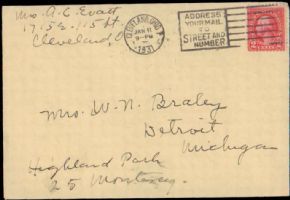 Mrs. A. C. Evatt
Cleveland, O
CLEVELAND, O
JAN 11
9-PM
1931
ADDRESS
YOUR MAIL
TO
STREET AND
NUMBER
Mrs. W. N. Braley
Detroit
Michigan
Highland Park
25 Monterey.